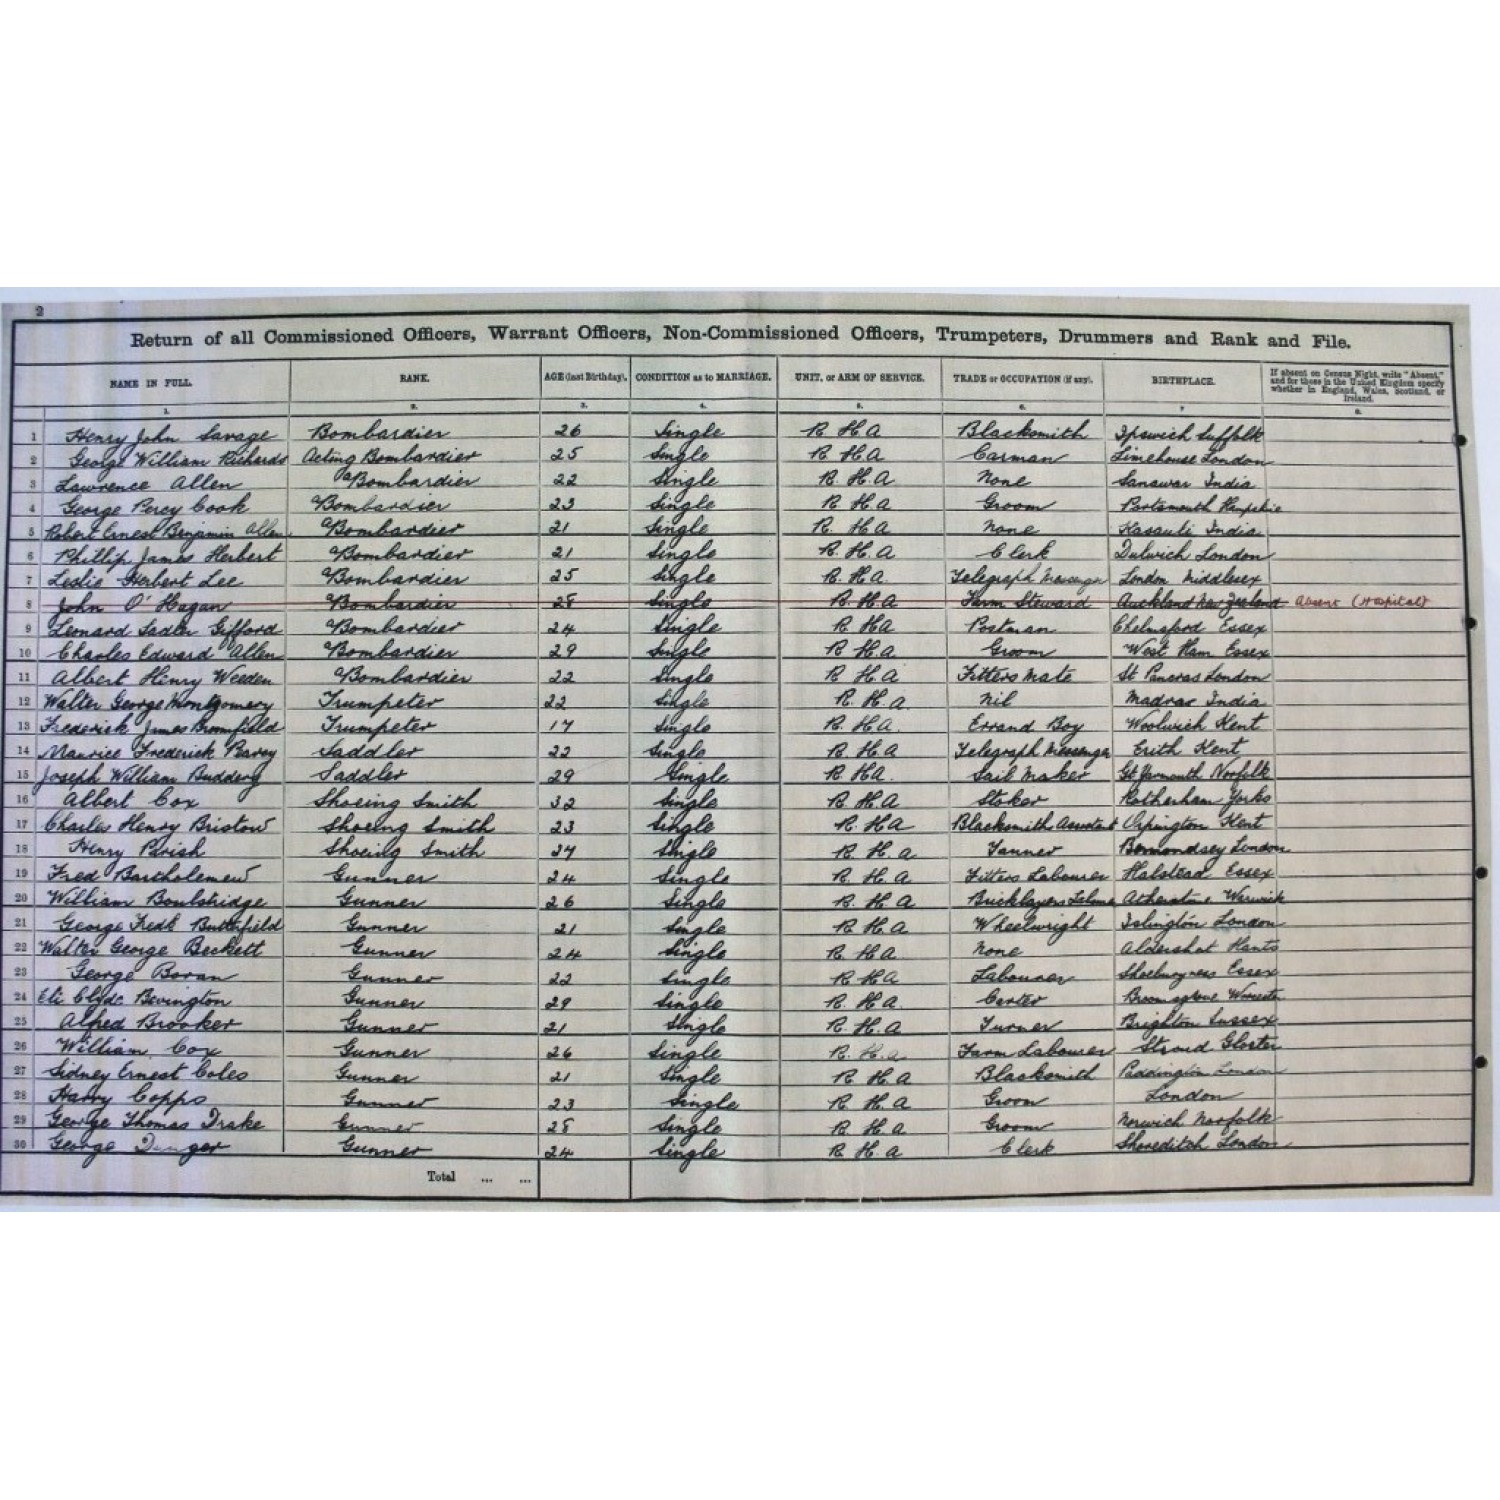 2
Return of all Commissioned Officers, Warrant Officers, Non-Commissioned Officers, Trumpeters, Drummers and Rank and File.
NAME IN FULL. RANK. AGE (last Birthday). CONDITION as to MARRIAGE. UNIT, or ARM OF SERVICE. TRADE or OCCUPATION (if any). BIRTHPLACE. If absent on Census Night, write "Absent," and for those in the United Kingdom specify whether in England, Wales, Scotland, or Ireland.
1. 2. 3. 4. 5. 6. 7 8.
1 Henry John Savage Bombardier 26 Single R H A Blacksmith Ipswich Suffolk
2 George William Richards Acting Bombardier 25 Single R H A Carman Limehouse London
3 Lawrence Allen Bombardier 22 Single R. H. A None Sanawar India
4 George Percy Cook Bombardier 23 Single R H A Groom Portsmouth Hampshire
5 Robert Ernest Benjamin Allen Bombardier 21 Single R. H A None Kasauli India
6 Phillip James Herbert Bombardier 21 Single R. H. A Clerk Dulwich London
7 Leslie Herbert Lee Bombardier 25 Single R. H A. Telegraph Messenger London Middlesex
8 John O'Hagan Bombardier 28 Single R. H. A Farm Steward Auckland New Zealand Absent (Hospital)
9 Leonard Sadler Gifford Bombardier 24 Single R HA Postman Chelmsford Essex
10 Charles Edward Allen Bombardier 29 Single R. H. A Groom West Ham Essex
11 Albert Henry Weeden Bombardier 22 Single R H A Fitters Mate St Pancras London
12 Walter George Montgomery Trumpeter 22 Single R. H. A Nil Madras India
13 Frederick James Bromfield Trumpeter 17 Single R. H A. Errand Boy Woolwich Kent
14 Maurice Frederick Saddler 22 Single R. H. A Telegraph Messenger Erith Kent
15 Joseph William Buddery Saddler 29 Single R. H A. Sail Maker Gt Yarmouth Norfolk
16 Albert Cox Shoeing Smith 32 Single R. H. A Stoker Rotherham Yorks
17 Charles Henry Bristow Shoeing Smith 23 Single R. H A Blacksmith Assistant Orpington Kent
18 Henry Parish Shoeing Smith 24 Single R. H. A Tanner Bermondsey London
19 Fred Bartholemew Gunner 24 Single R. H. A Fitters Labourer Halstead Essex
20 William Boulstridge Gunner 26 Single R. H. A Bricklayers Atherstone Warwick
21 George Fredk Butterfield Gunner 21 Single R. H A Wheelwright Islington London
22 Walter George Beckett Gunner 24 Single R. H. A None Aldershot Hants
23 George Boran Gunner 22 Single R H A Labourer Shoeburyness Essex
24 Eli Clyde Bevington Gunner 29 Single R. H A Carter Bromsgrove Worcester
25 Alfred Brooker Gunner 21 Single R. H. A Turner Brighton Sussex
26 William Cox Gunner 26 Single R. H. A Farm Labourer Stroud Gloster
27 Sidney Ernest Coles Gunner 21 Single R. H. A Blacksmith Paddington London
28 Harry Copps Gunner 23 Single R. H. A Groom London
29 George Thomas Drake Gunner 28 Single R. H. A Groom Norwich Norfolk
30 George Gunner 24 Single R. H. A Clerk Shoreditch London
Total ... ...